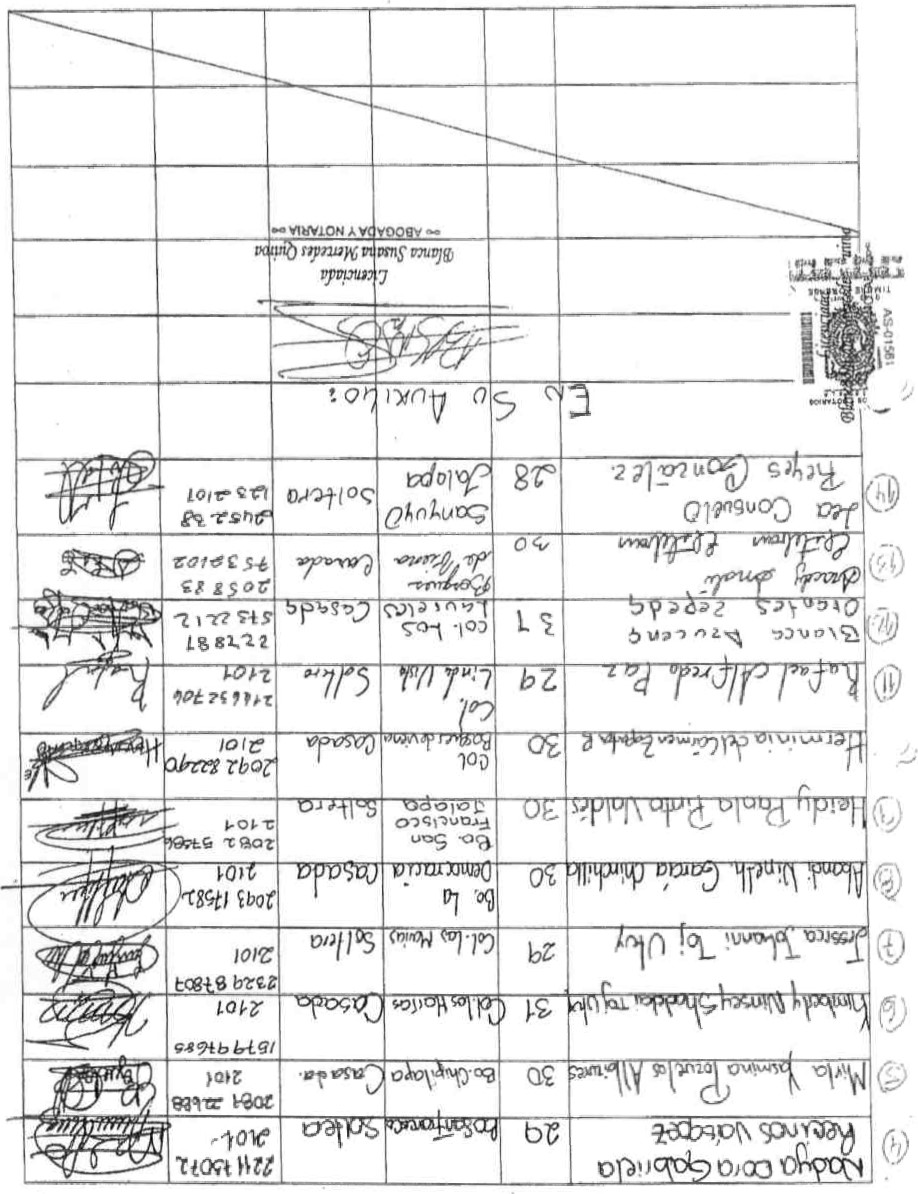 4 Nadya Dora Gabriela
Recinos Vásquez 29 Soltera 2241 75072
2101
5 Mirla Yasmina Pozuelos Albizures 30 Bo. Chipilapa Casada. 2101
6 Kimberly Nimsey Shaddai Toj Ukuy 31 Col. las Marías Casada 1579 97685
2101
7 Jessica Johanni Toj Ukuy 29 Col. Las Marias Soltera 2329 87807
2101
8 Abandi Vineth. García Chinchilla 30 Bo. La
Democracia Casada 2093 17582
2101
9 Heidy Paola Pinto Valdés 30 Bo. San
Francisco
Jalapa Soltera 2082 57586
2101
Herminia del Carmen Zepeda R 30 Col
Bosques de viena Casada 2092 82290
2101
11 Rafael Alfredo Paz 29 Col.
Linda Vista Soltero 2166 32706
2101
12 Blanca Azucena
Orantes Zepeda 37 Col. Los
Laureles Casada 227887
573 2212
13 30 Bosques
de Viena Casada 205883
753 2102
14 Lea Consuelo
Reyes González. 28 Sanyuyo
Jalapa Soltera 2452 38
123 2101
EN SU AUXILIO:
AS-01561
Licenciada
Blanca Susana Mercedes Quiroa
ABOGADA Y NOTARIA